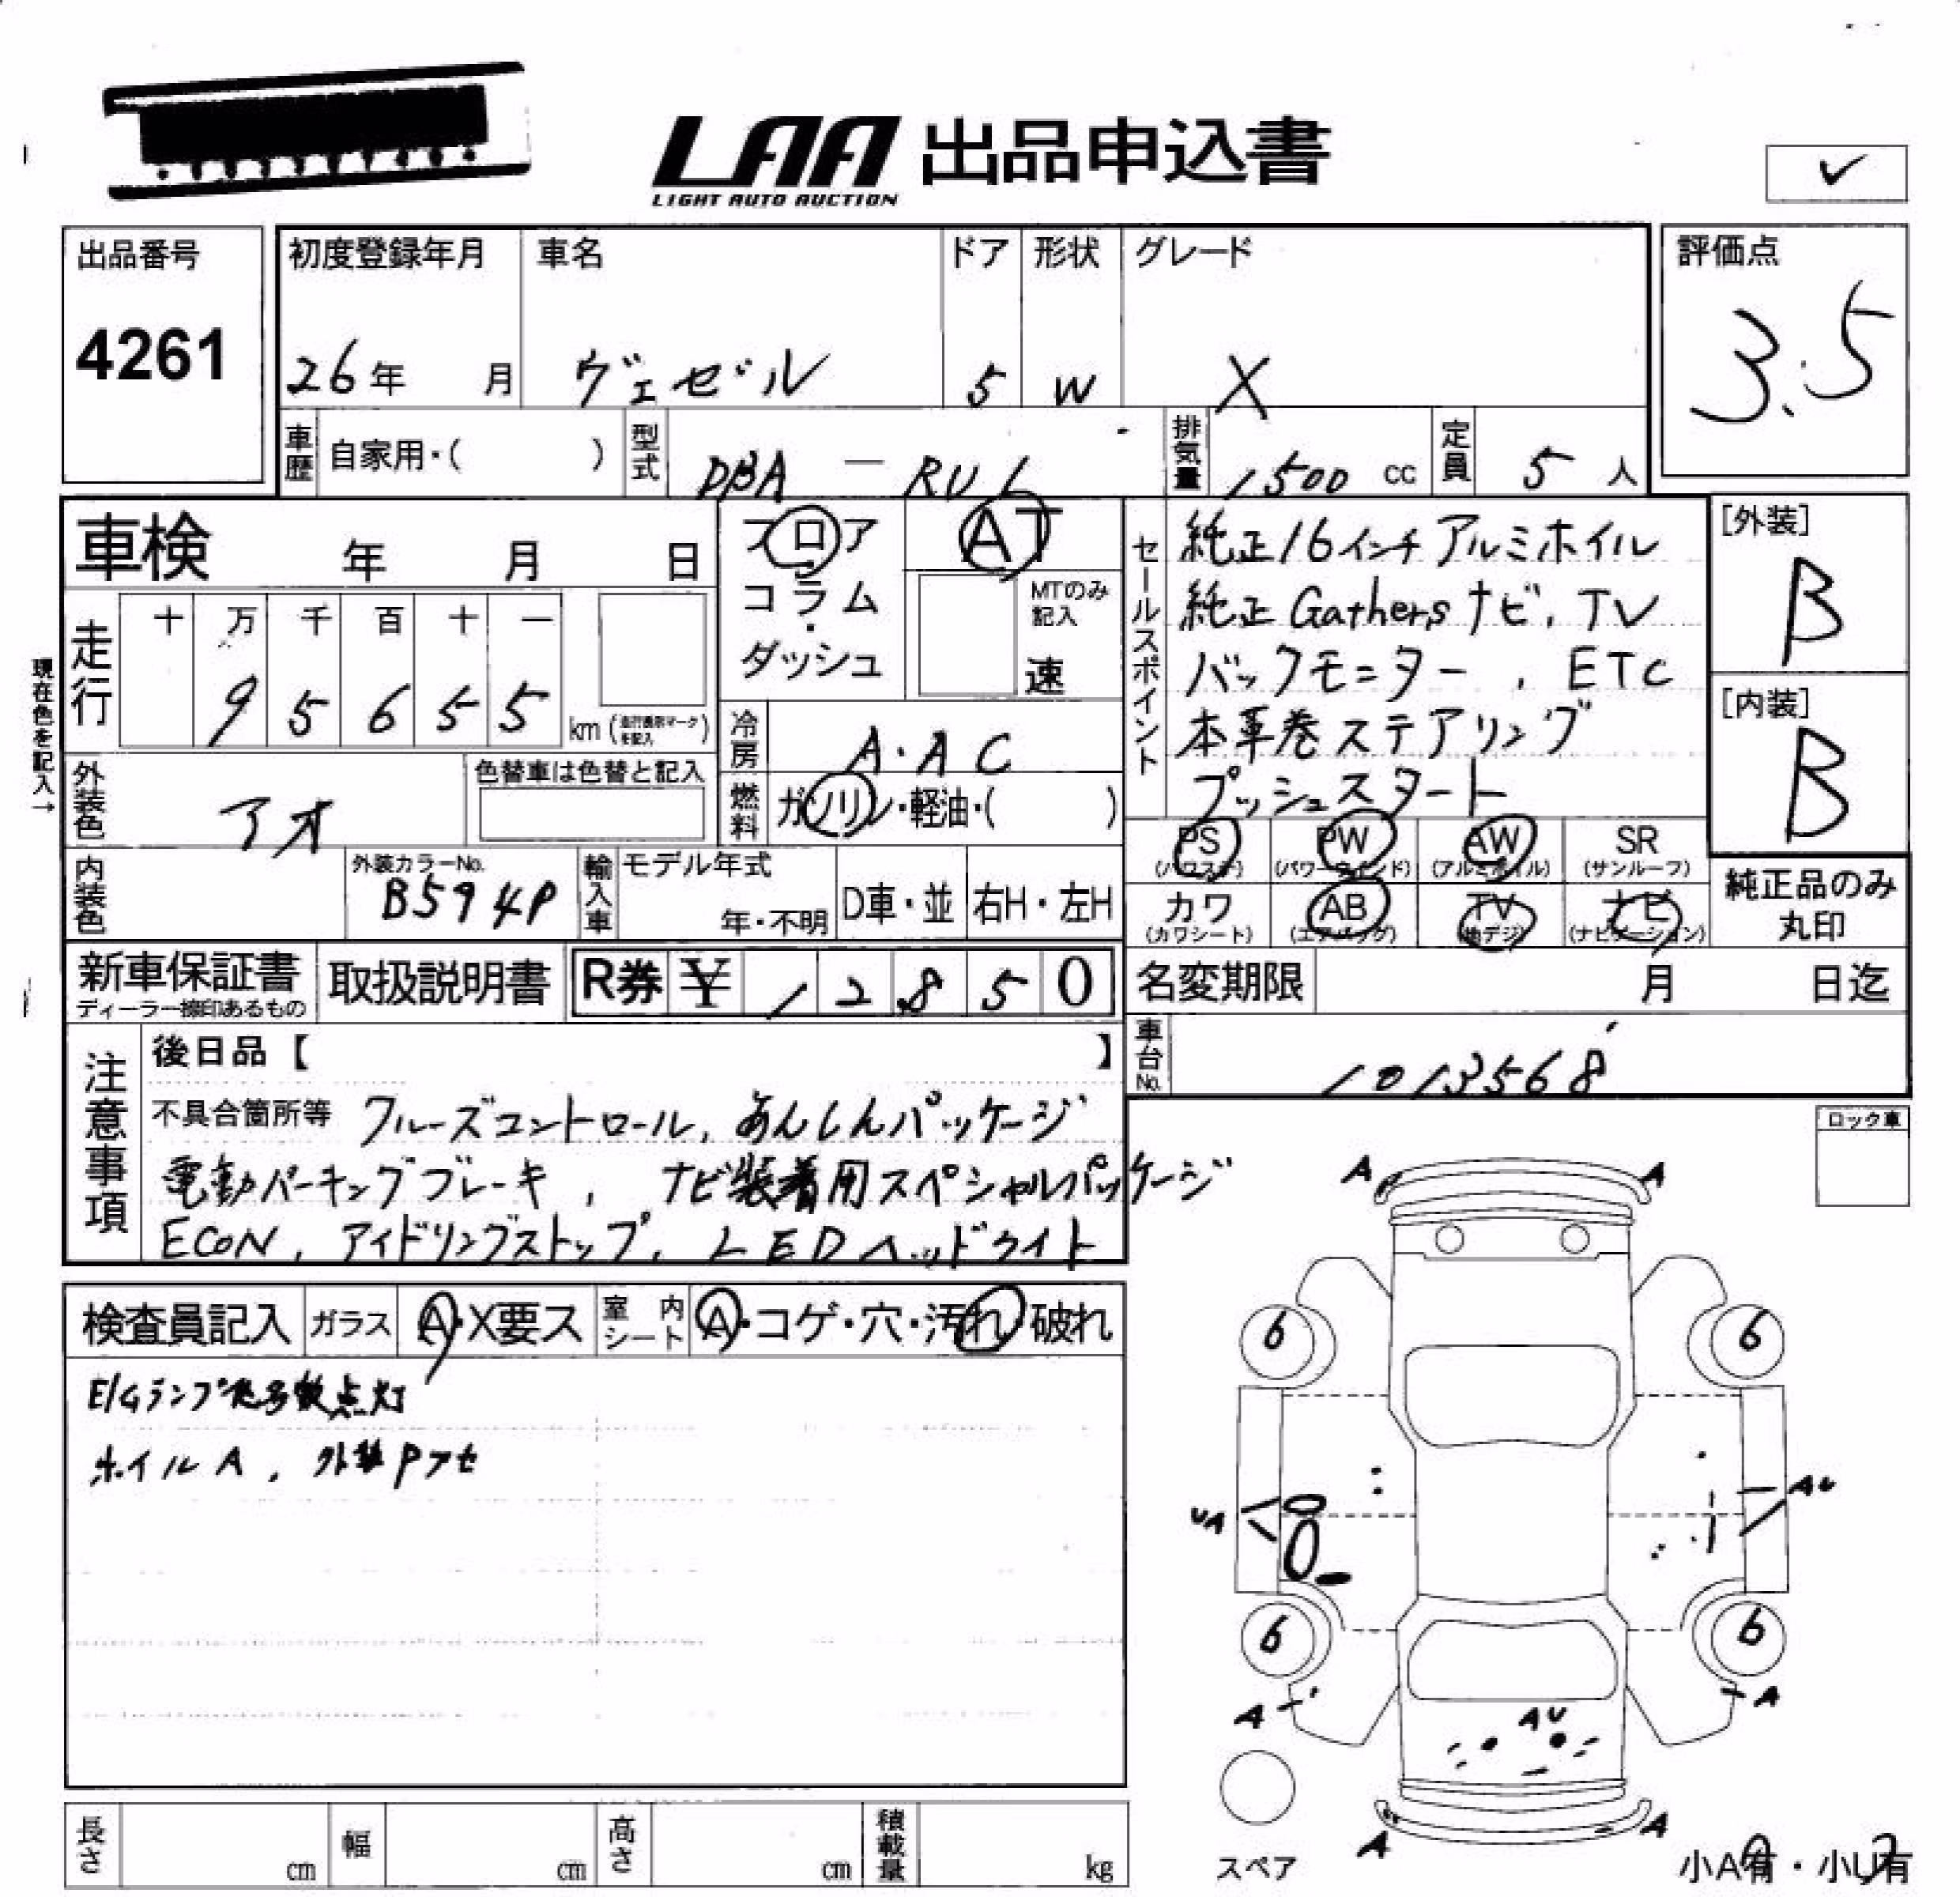 LAA 出品申込書
LIGHT AUTO AUCTION
出品番号
4261
初度登録年月
26年 月
車名
ヴェゼル
ドア
5
形状
W
グレード
X
評価点
3.5
車歴 自家用・( )
型式 DBA — RU1
排気量 1500 cc
定員 5 人
車検 年 月 日
フロア
コラム
ダッシュ
AT
MTのみ
記入
速
セールスポイント
純正16インチアルミホイル
純正Gathersナビ,TV
バックモニター , ETC
本革巻ステアリング
プッシュスタート
[外装]
B
[内装]
B
現在色を記入→
走行
十 万 千 百 十 一
9 5 6 5 5
km (走行表示マークを記入)
冷房 A・AC
外装色 アオ
色替車は色替と記入
燃料 ガソリン・軽油・( )
PS
(パワステ)
PW
(パワーウインド)
AW
(アルミホイル)
SR
(サンルーフ)
カワ
(カワシート)
AB
(エアバッグ)
TV
(地デジ)
ナビ
(ナビゲーション)
純正品のみ
丸印
内装色
外装カラーNo.
B594P
輸入車
モデル年式
年・不明
D車・並
右H・左H
新車保証書
ディーラー捺印あるもの
取扱説明書
R券 ¥ 1 2 8 5 0
名変期限 月 日迄
車台No. 1013568
注意事項
後日品【 】
不具合箇所等 クルーズコントロール, あんしんパッケージ
電動パーキングブレーキ , ナビ装着用スペシャルパッケージ
ECON, アイドリングストップ, LEDヘッドライト
ロック車
検査員記入
ガラス A・X要ス
室内シート A・コゲ・穴・汚れ・破れ
E/Gランプ 点灯
ホイルA , 外装Pアセ
A A
6 6
UA AU
6 6
A A
AU
A A
スペア
小A有・小U有
長さ cm
幅 cm
高さ cm
積載量 kg